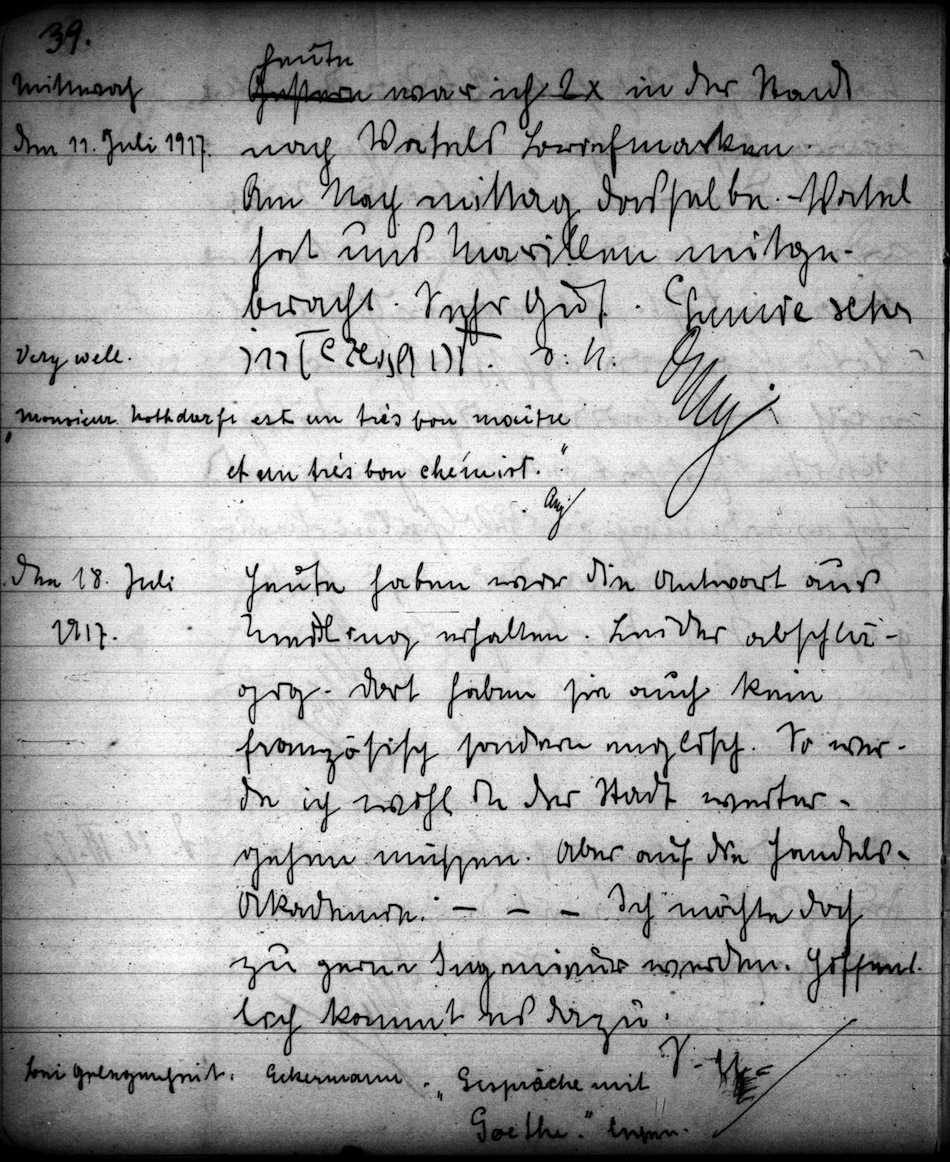 39.
heute
Mittwoch Gestern war ich 2x in der Stadt
den 11. Juli 1917. nach Vatels Briefmarken.
Am Nachmittag dasselbe. Vatel
hat uns Marillen mitge-
bracht. Sehr gut.
Very well.
"Monsieur Nothdurft est un très bon maître
et un très bon chémist."
den 18. Juli Heute haben wir die Antwort aus
1917. Mödling erhalten. Leider abschlä-
gig. Dort haben sie auch kein
französisch sondern englisch. So wer-
de ich wohl in der Stadt weiter-
gehen müssen. Aber auf die Handels-
Akademie. — — — Ich möchte doch
zu gerne Ingenieur werden. Hoffent-
lich kommt es dazu.
bei Gelegenheit: Eckermann. "Gespräche mit
Goethe." lesen.